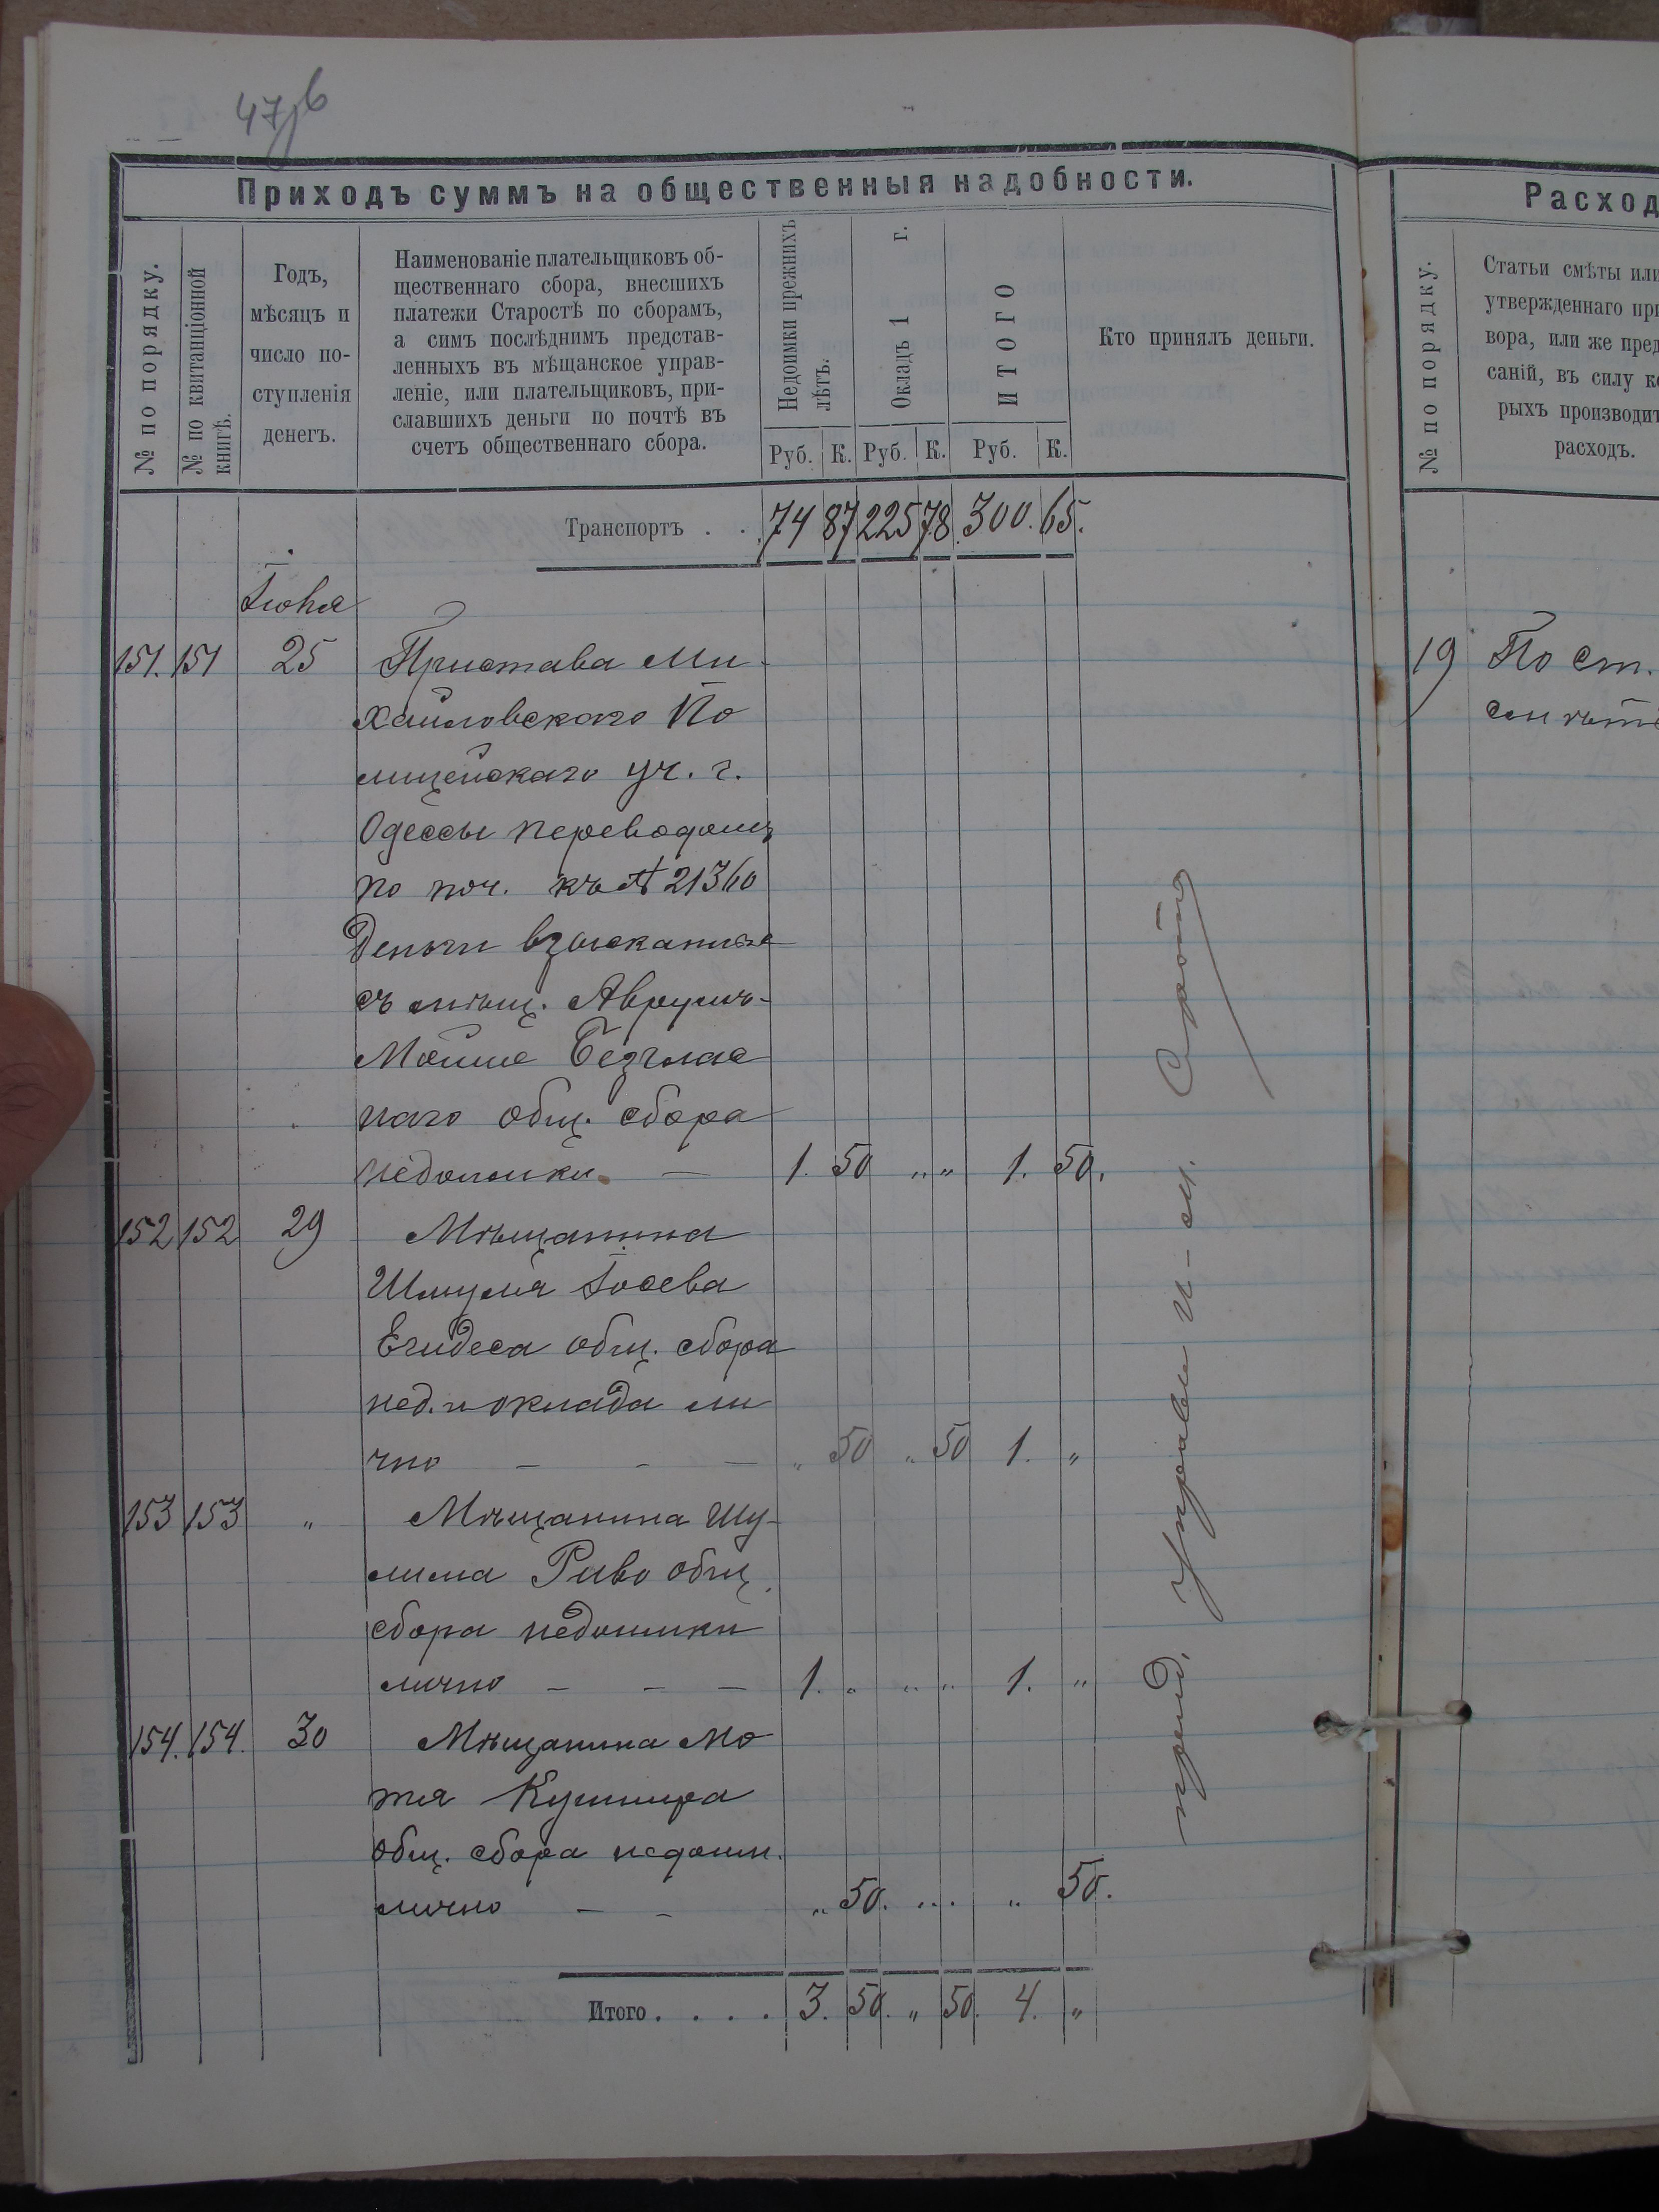 47об
Приходъ суммъ на общественныя надобности.
№ по порядку.
№ по квитанціонной
книгѣ.
Годъ,
мѣсяцъ и
число по-
ступленія
денегъ.
Наименованіе плательщиковъ об-
щественнаго сбора, внесшихъ
платежи Старостѣ по сборамъ,
а симъ послѣднимъ представ-
ленныхъ въ мѣщанское управ-
леніе, или плательщиковъ, при-
славшихъ деньги по почтѣ въ
счетъ общественнаго сбора.
Недоимки прежнихъ
лѣтъ.
Окладъ 1 г.
ИТОГО
Кто принялъ деньги.
Руб. К. Руб. К. Руб. К.
Транспортъ . . 74 87 225 78 300. 65.
Іюня
151. 151 25 Пристава Ми-
хайловскаго По
лицейскаго уч. г.
Одессы переводомъ
по поч. къ № 21360
Деньги взысканные
съ мѣщ. Аврумъ-
Мойше Безглас
наго общ. сбора
недоимки — 1. 50 „ „ 1. 50.
152 152 29 Мѣщанина
Шмуля Іосева
Егидеса общ. сбора
нед. и оклада ли
чно — — — „ 50 „ 50 1. „
153 153 „ Мѣщанина Шу-
лима Риво общ.
сбора недоимки
лично — — — 1. „ „ „ 1. „
154. 154. 30 Мѣщанина Мо
тя Кушнира
общ. сбора недоим.
лично — — „ 50. „ „ „ 50.
Итого . . . . 3. 50. „ 50. 4. „
Управы
Расход
№ по порядку.
Статьи смѣты или
утвержденнаго при
вора, или же пред
саній, въ силу ко
рыхъ производит
расходъ.
19 По ст.
смѣт